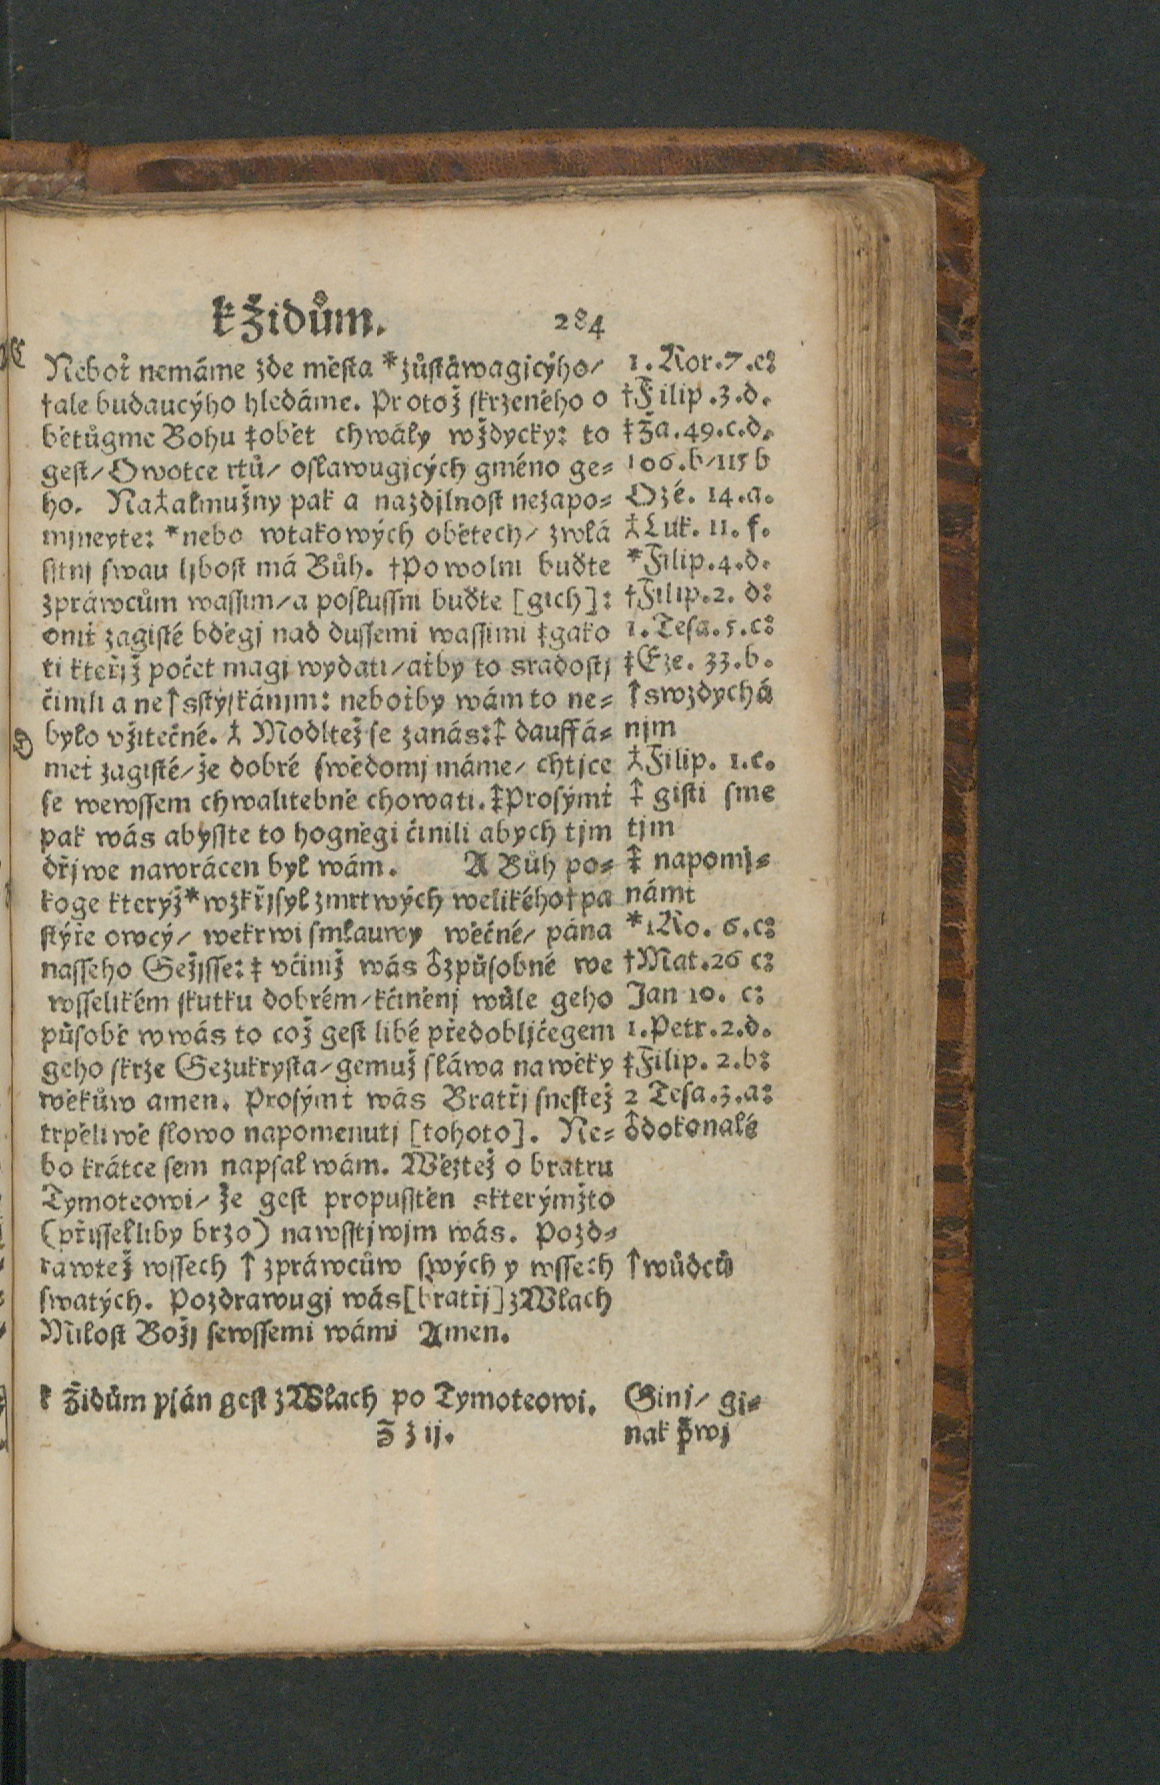 k Židům. 284
C
Neboť nemáme zde města *zůstáwagjcýho/
†ale budaucýho hledáme. Protož skrzeného o
bětůgme Bohu ‡obět chwály wždycky: to
gest/ Owotce rtů/ oslawugjcých gméno ge⸗
ho. Na⁂almužny pak a nazdjlnost nezapo⸗
mjneyte: *nebo wtakowých obětech/ zwlá
sstnj swau ljbost má Bůh. †Powolni buďte
zpráwcům wassim/ a poslussni buďte [gich]:
oniť zagisté bděgj nad dussemi wassimi ‡gako
ti kteřjž počet magj wydati/ ať by to sradostj
činili a ne↑sstýskánjm: neboť by wám to ne⸗
D
bylo vžitečné. ⁂ Modltež se zanás: ‡ dauffá⸗
meť zagisté/ že dobré swědomj máme/ chtjce
se wewssem chwalitebně chowati. ‡Prosýmť
pak wás abysste to hogněgi činili abych tjm
dřjwe nawrácen byl wám. A Bůh po⸗
koge kterýž*wzkřjsyl zmrtwých welikého†pa
stýře owcý/ wekrwi smlauwy wěčné/ pána
nasseho Gežjsse: ‡ včiniž wás ♁způsobné we
wsselikém skutku dobrém/ kčiněnj wůle geho
působě wwás to což gest libé předobljčegem
geho skrze Gezukrysta/ gemuž sláwa na wěky
wěkůw amen. Prosýmť wás Bratřj snestež
trpěliwě slowo napomenutj [tohoto]. Ne⸗
bo krátce sem napsal wám. Wěztež o bratru
Tymoteowi/ že gest propusstěn skterýmžto
(přisselliby brzo) nawsstjwjm wás. Pozd⸗
rawtež wssech ↑ zpráwcůw swých y wssech
swatých. Pozdrawugj wás [bratřj] zWlach
Milost Božj sewssemi wámi Amen.
k Židům psán gest zWlach po Tymoteowi.
Z z ij.
1. Kor. 7. c:
†Filip. 3. d.
‡Ža. 49. c. d.
106. b/ 115 b
Ozé. 14. a.
⁂Luk. 11. f.
*Filip. 4. d.
†Filip. 2. d:
1. Tesa. 5. c:
‡Eze. 33. b.
↑swzdychá
njm
⁂Filip. 1. c.
‡ gisti sme
tjm
‡ napomj⸗
námt
*1Ko. 6. c:
†Mat. 26 c:
Jan 10. c:
1. Petr. 2. d.
‡Filip. 2. b:
2 Tesa. 3. a:
♁dokonalé
↑wůdců
Ginj/ gi⸗
nak prwj